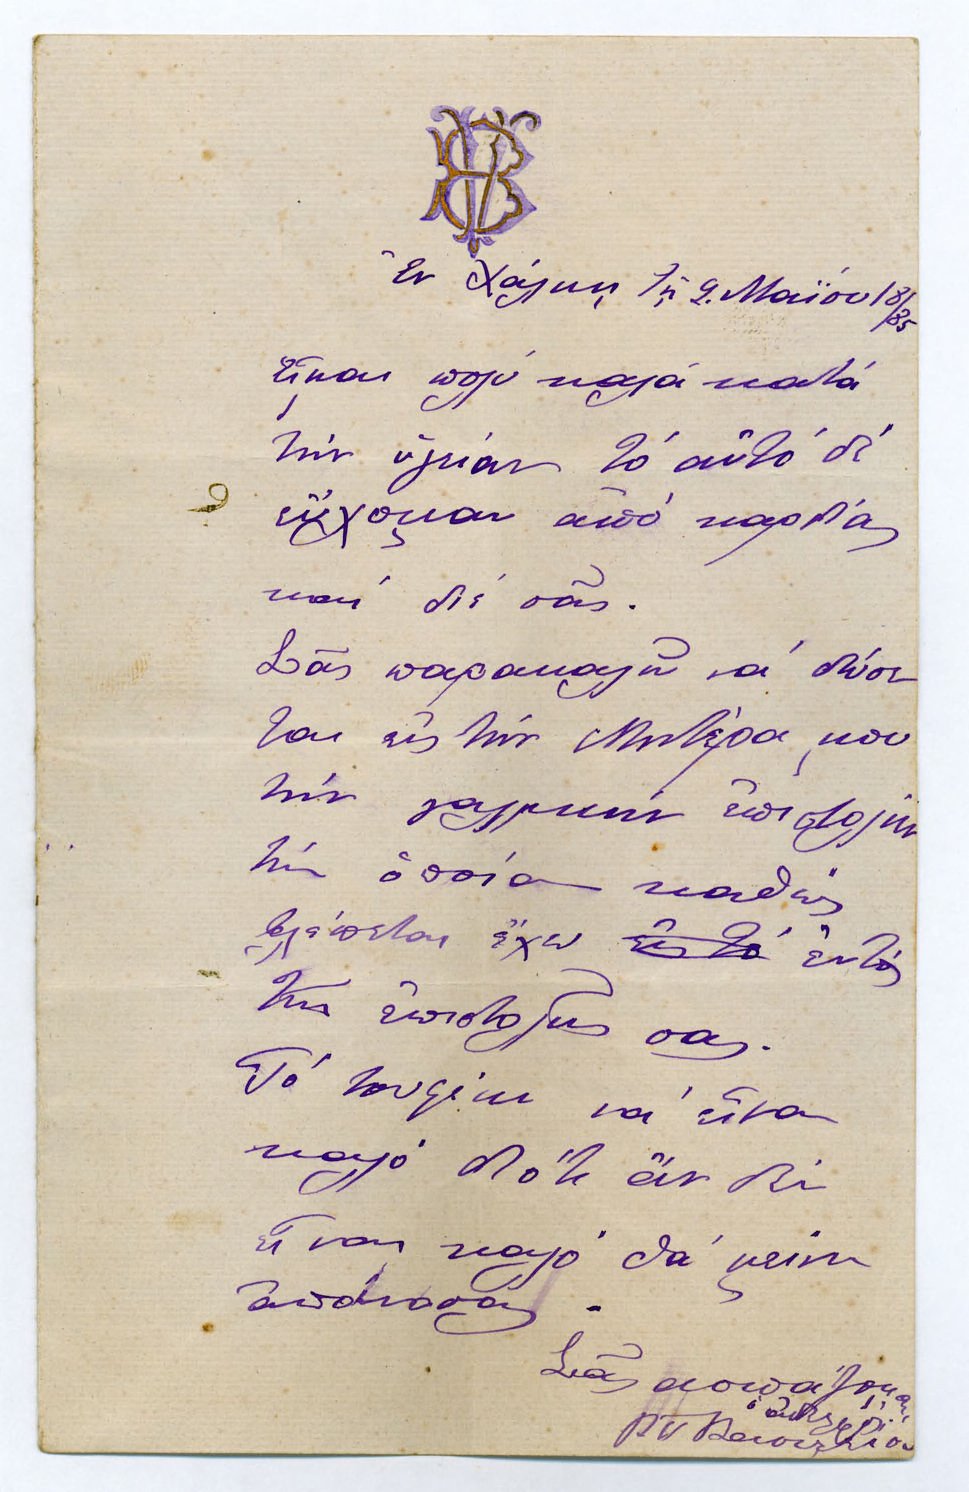 Ἐν Χάλκῃ τῇ 9. Μαΐου 18/85
Εἶμαι πολύ καλά κατά
τήν ὑγείαν τό αὐτό δέ
εὔχομαι ἀπό καρδίας
καί διέ σᾶς.
Σᾶς παρακαλῶ νά δώσε
ται εἰς τήν Μητέρα μου
τήν γαλλικήν ἐπιστολήν
τήν ὁποίαν καθώς
βλέπεται ἔχω εἰς τό ἐντός
τῆς ἐπιστολῆς σας.
Τό τουφέκι νά εἶναι
καλό διότι ἄν δέν
εἶναι καλό θά μείνη
ἀπάνωσας.
Σᾶς ἀσπάζομαι
ὁ ἀδελφός